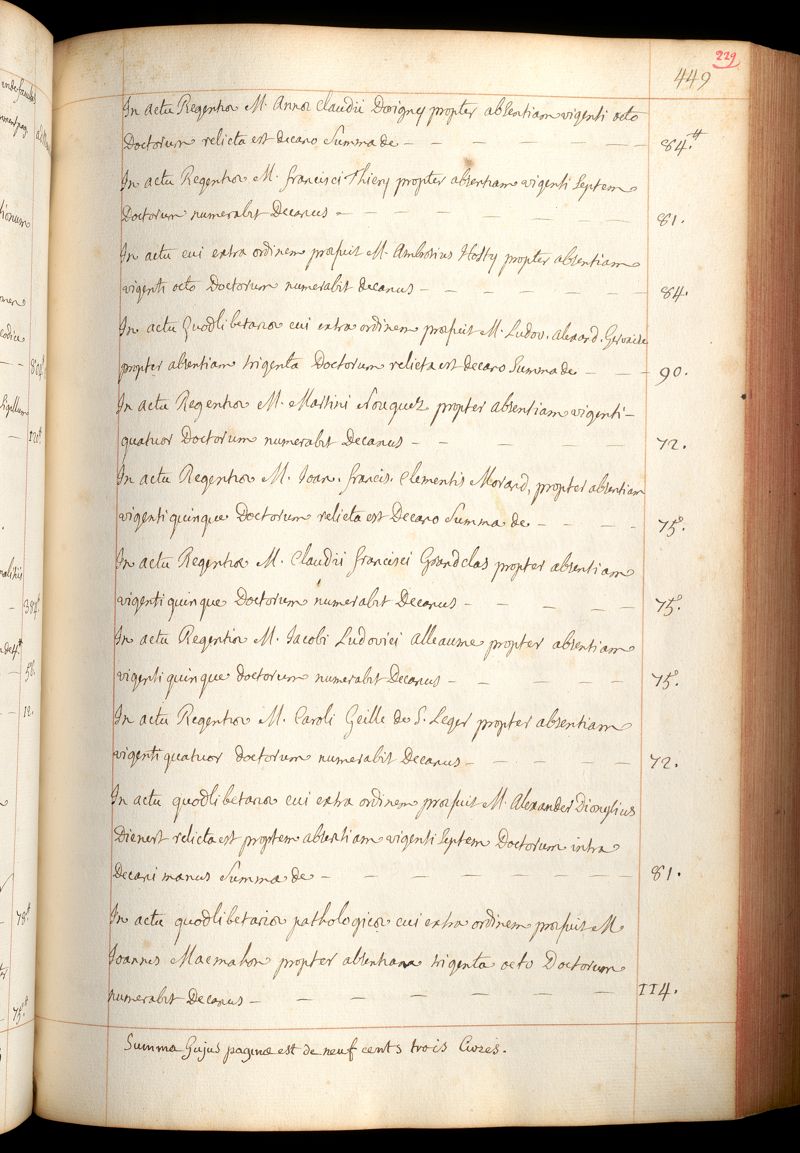 229
449
In actu Regentiæ M. Annæ Claudii Dorigny propter absentiam vigenti octo
Doctorum relicta est decano Summa de — 84.tt
In actu Regentiæ M. francisci Thiery propter absentiam vigenti Septem
Doctorum numerabit Decanus — 81.
In actu cui extra ordinem præfuit M. Ambrosius Hosty propter absentiam
vigenti octo Doctorum numerabit decanus — 84.
In actu Quodlibetariæ cui extra ordinem præfuit M. Ludov. alexand. Gervaise
propter absentiam trigenta Doctorum relicta est decano Summa de — 90.
In actu Regentiæ M. Martini Nouguez propter absentiam vigenti-
quatuor Doctorum numerabit Decanus — 72.
In actu Regentiæ M. Joan. francis. Clementis Morand, propter absentiam
vigenti quinque Doctorum relicta est Decano Summa de — 75.
In actu Regentiæ M. Claudii francisci Grandclas propter absentiam
vigenti quinque Doctorum numerabit Decanus — 75.
In actu Regentiæ M. Jacobi Ludovici alleaume propter absentiam
vigenti quinque doctorum numerabit Decanus — 75.
In actu Regentiæ M. Caroli Geille de S. Leger propter absentiam
vigenti quatuor doctorum numerabit Decanus — 72.
In actu quodlibetariæ cui extra ordinem præfuit M. Alexander Dionysius
Dienert relicta est proptem absentiam vigenti Septem Doctorum intra
Decani manus Summa de — 81.
In actu quodlibetariæ pathologicæ cui extra ordinem præfuit M
Joannes Macmahon propter absentiam trigenta octo Doctorum
numerabit Decanus — 114.
Summa hujus paginæ est de neuf cents trois livres.